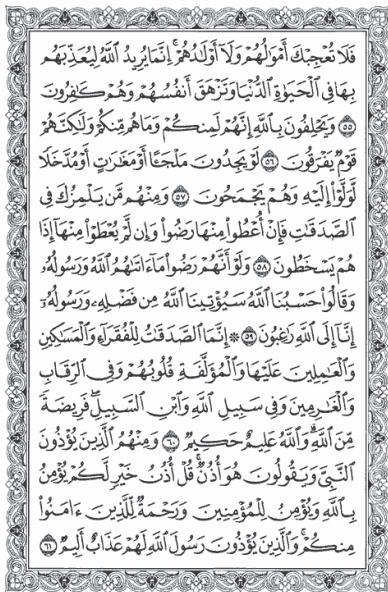 فَلَا تُعْجِبْكَ أَمْوَٰلُهُمْ وَلَآ أَوْلَٰدُهُمْ ۚ إِنَّمَا يُرِيدُ ٱللَّهُ لِيُعَذِّبَهُم
بِهَا فِى ٱلْحَيَوٰةِ ٱلدُّنْيَا وَتَزْهَقَ أَنفُسُهُمْ وَهُمْ كَٰفِرُونَ
٥٥ وَيَحْلِفُونَ بِٱللَّهِ إِنَّهُمْ لَمِنكُمْ وَمَا هُم مِّنكُمْ وَلَٰكِنَّهُمْ
قَوْمٌ يَفْرَقُونَ ٥٦ لَوْ يَجِدُونَ مَلْجَـًٔا أَوْ مَغَٰرَٰتٍ أَوْ مُدَّخَلًا
لَّوَلَّوْا۟ إِلَيْهِ وَهُمْ يَجْمَحُونَ ٥٧ وَمِنْهُم مَّن يَلْمِزُكَ فِى
ٱلصَّدَقَٰتِ فَإِنْ أُعْطُوا۟ مِنْهَا رَضُوا۟ وَإِن لَّمْ يُعْطَوْا۟ مِنْهَآ إِذَا
هُمْ يَسْخَطُونَ ٥٨ وَلَوْ أَنَّهُمْ رَضُوا۟ مَآ ءَاتَىٰهُمُ ٱللَّهُ وَرَسُولُهُۥ
وَقَالُوا۟ حَسْبُنَا ٱللَّهُ سَيُؤْتِينَا ٱللَّهُ مِن فَضْلِهِۦ وَرَسُولُهُۥٓ
إِنَّآ إِلَى ٱللَّهِ رَٰغِبُونَ ٥٩ ۞ إِنَّمَا ٱلصَّدَقَٰتُ لِلْفُقَرَآءِ وَٱلْمَسَٰكِينِ
وَٱلْعَٰمِلِينَ عَلَيْهَا وَٱلْمُؤَلَّفَةِ قُلُوبُهُمْ وَفِى ٱلرِّقَابِ
وَٱلْغَٰرِمِينَ وَفِى سَبِيلِ ٱللَّهِ وَٱبْنِ ٱلسَّبِيلِ ۖ فَرِيضَةً
مِّنَ ٱللَّهِ ۗ وَٱللَّهُ عَلِيمٌ حَكِيمٌ ٦٠ وَمِنْهُمُ ٱلَّذِينَ يُؤْذُونَ
ٱلنَّبِىَّ وَيَقُولُونَ هُوَ أُذُنٌ ۚ قُلْ أُذُنُ خَيْرٍ لَّكُمْ يُؤْمِنُ
بِٱللَّهِ وَيُؤْمِنُ لِلْمُؤْمِنِينَ وَرَحْمَةٌ لِّلَّذِينَ ءَامَنُوا۟
مِنكُمْ ۚ وَٱلَّذِينَ يُؤْذُونَ رَسُولَ ٱللَّهِ لَهُمْ عَذَابٌ أَلِيمٌ ٦١